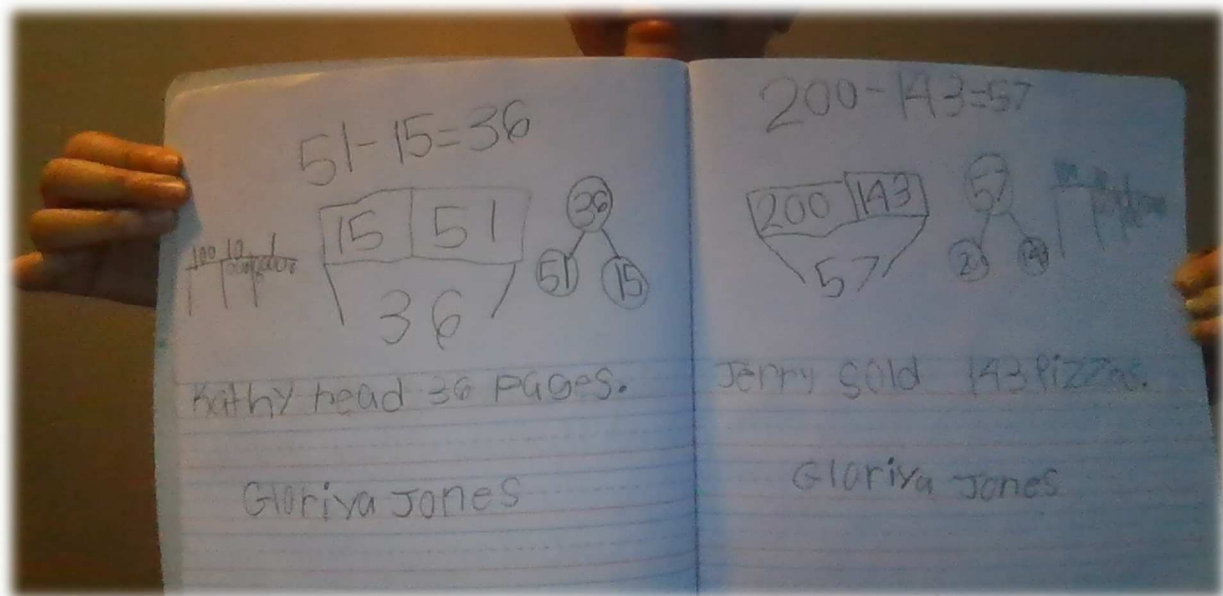 51-15=36
100 10 1
15 51
36
36
51 15
Kathy read 36 pages.
Gloriya Jones
200-143=57
200 143
57
57
Jerry sold 143 Pizzas.
Gloriya Jones